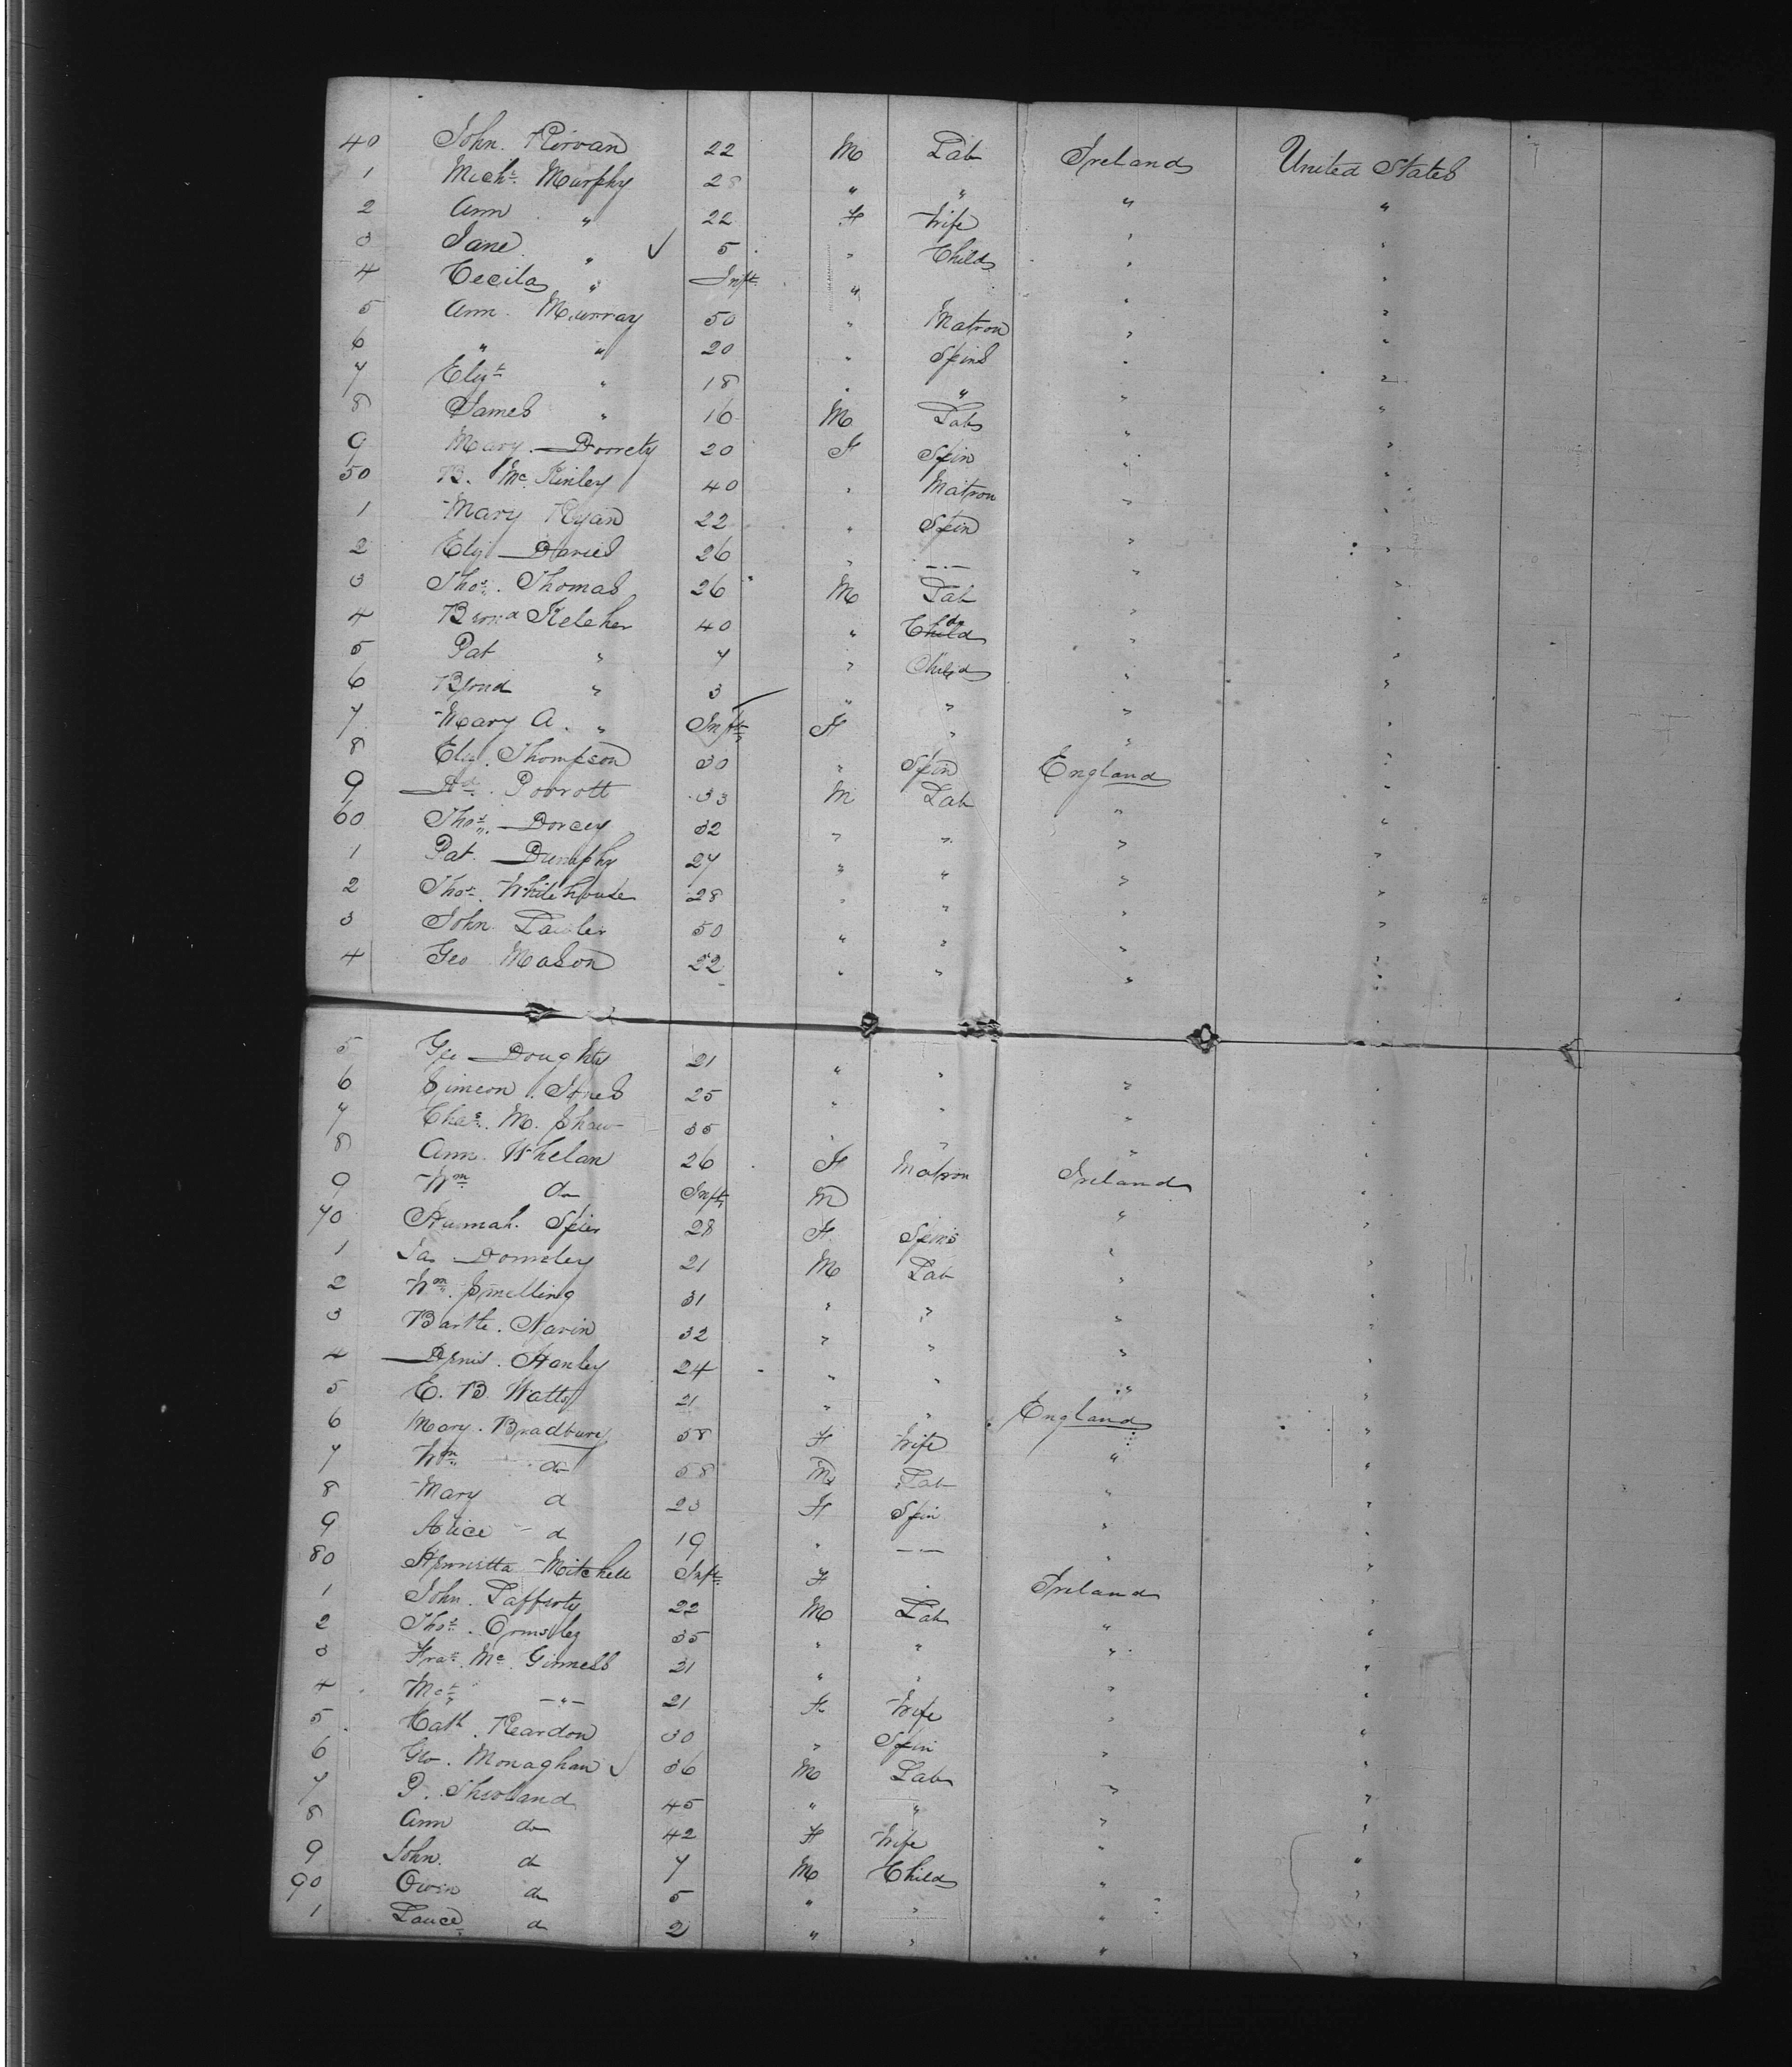 40 John Kirvan 22 M Lab Ireland United States
1 Michl. Murphy 28 " " " "
2 Ann " 22 F Wife " "
3 Jane " 5 " Child " "
4 Cecila " Inft. " " "
5 Ann Murray 50 " Matron " "
6 " " 20 " Spins " "
7 Elizth " 18 " " " "
8 James " 16 M Lab " "
9 Mary Dorrety 20 F Spin " "
50 B. Mc. Kinley 40 " Matron " "
1 Mary Ryan 22 " Spin " "
2 Eliz Davies 26 " — " — " "
3 Thos. Thomas 26 M Lab " "
4 Kelcher 40 " " "
5 Pat " 7 " Child " "
6 " 3 " " " "
7 Mary A. " Inft. F " " "
8 Eliz. Thompson 30 " Spin England "
9 Porrott 33 M Lab " "
60 Thos. Dorcey 32 " " " "
1 Pat. Dunphy 27 " " " "
2 Thos. Whitehouse 28 " " " "
3 John Lawler 50 " " " "
4 Geo Mason 22 " " " "
5 Geo Doughty 21 " " " "
6 Simeon Jones 25 " " " "
7 Chas. M. Shaw 35 " " " "
8 Ann Whelan 26 F Matron Ireland "
9 Wm. do Inft. M " "
70 Hannah Spier 28 F Spins " "
1 Jas Donneley 21 M Lab " "
2 Wm. Smelling 31 " " " "
3 Barth. Navin 32 " " " "
4 Denis. Hanley 24 " " " "
5 E. B. Watts 21 " " England "
6 Mary. Bradbury 58 F Wife " "
7 Wm. do 58 M Lab " "
8 Mary d 23 F Spin " "
9 Alice d 19 " — — " "
80 Henrietta Mitchell Inft. F " Ireland "
1 John. Lafferty 22 M Lab " "
2 Thos. Ormsley 35 " " " "
3 Fras. Mc. Ginness 21 " " " "
4 — " — 21 F Wife " "
5 Cath. Reardon 30 " Spin " "
6 Geo. Monaghan 36 M Lab " "
7 P. 45 " " " "
8 Ann do 42 F Wife " "
9 John. d 7 M Child " "
90 Owin d 5 " " " "
1 d 2 " " " "